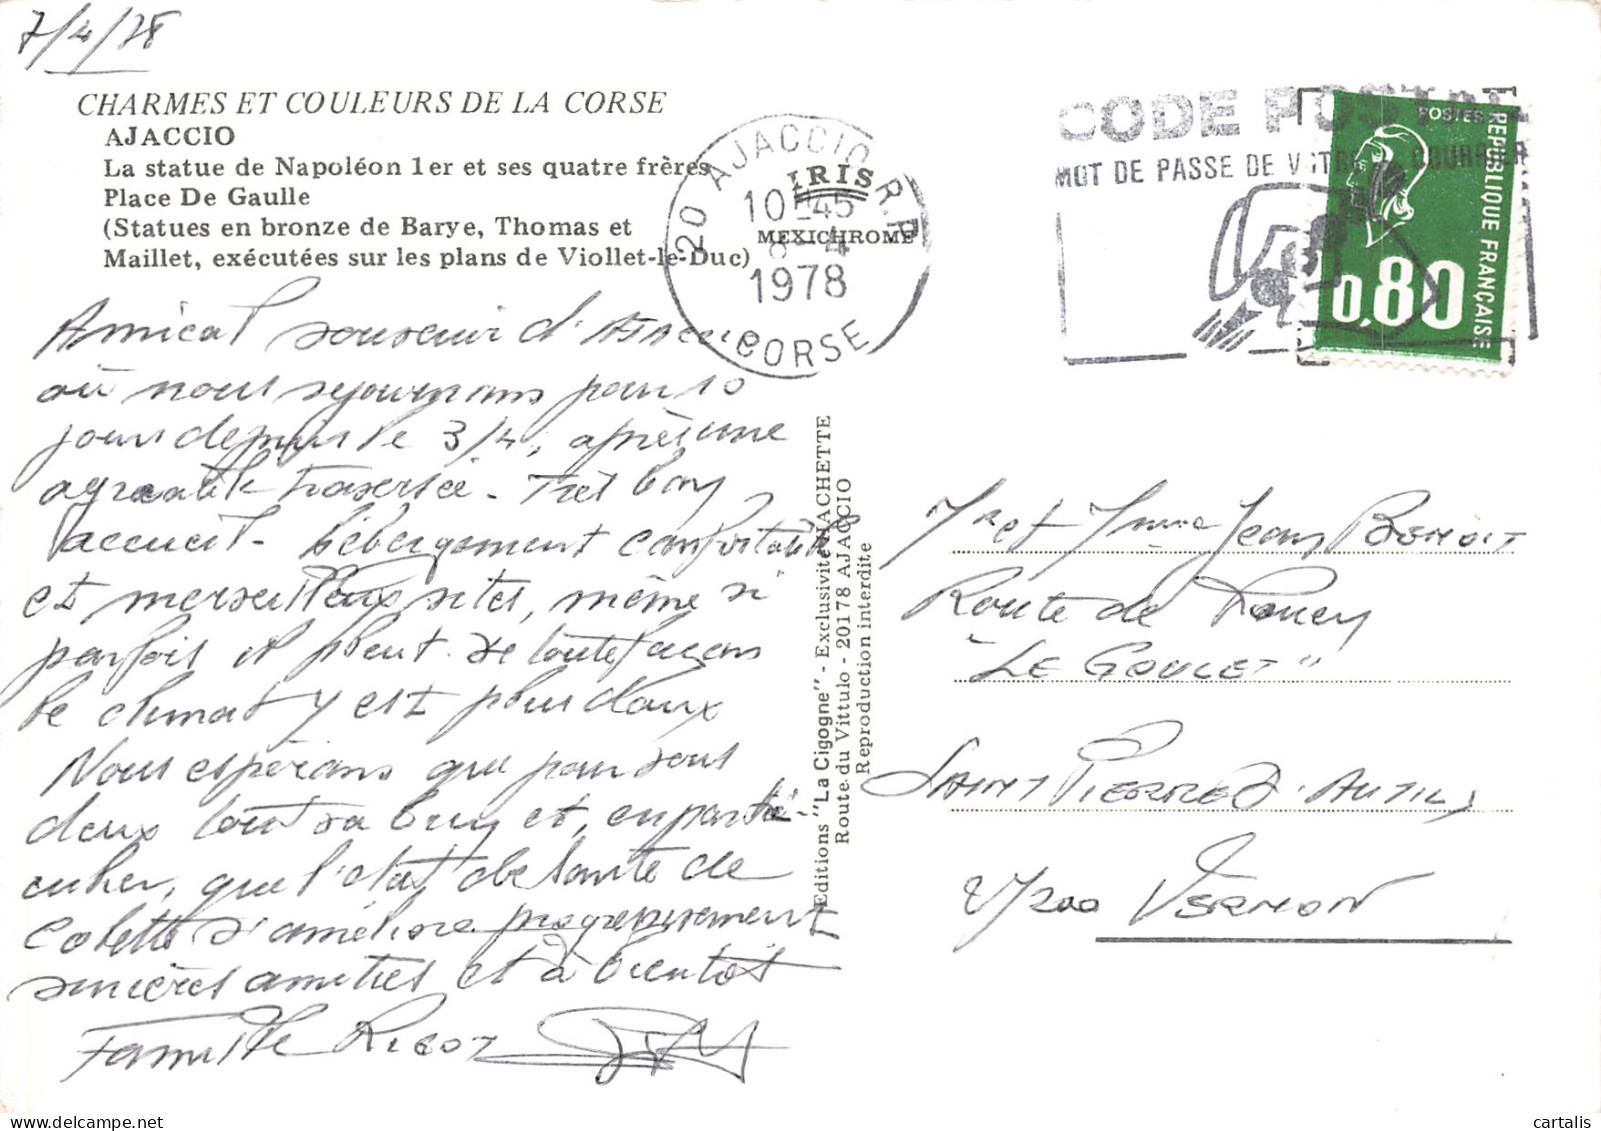 7/4/78
CHARMES ET COULEURS DE LA CORSE
AJACCIO
La statue de Napoléon 1er et ses quatre frères
Place De Gaulle
(Statues en bronze de Barye, Thomas et
Maillet, exécutées sur les plans de Viollet-le-Duc)
Amical souvenir d'Ajaccio
où nous séjournons pour 10
jours depuis le 3/4, après une
agréable traversée - Très bon
accueil - hébergement confortable
et merveilleux sites, même si
parfois il pleut. De toute façons
le climat y est plus doux
Nous espérons que pour vous
deux tout va bien et, en parti-
culier, que l'état de santé de
Colette s'améliore progressivement
sincères amitiés et à bientôt
Famille Ricot
IRIS
MEXICHROME
20 AJACCIO R.P.
10H45
8-4
1978
CORSE
CODE POSTAL
MOT DE PASSE DE VOTRE COURRIER
POSTES
REPUBLIQUE FRANÇAISE
0,80
Editions "La Cigogne" - Exclusivité HACHETTE
Route du Vittulo - 20178 AJACCIO
Reproduction interdite
Mr et Mme Jean BENOIT
Route de
"LE GOULET"
SAINT PIERRE D'AUTILS
27200 VERNON
cartalis